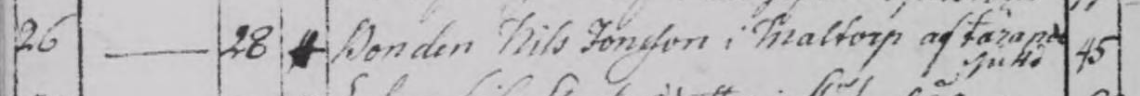 26 — 28 # Bonden Nils Jonsson i Maltorp af tärande
sjukd 45